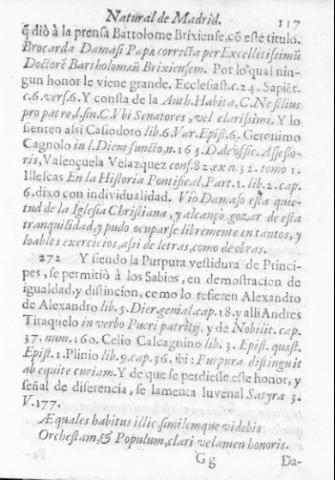 Natural de Madrid. 117
q̃ diò à la prensa Bartolome Brixiense, cõ este titulo.
Brocarda Damasi Papa correcta per Excellẽtissimũ
Doctorẽ Bartholomæũ Brixiensem. Por lo qual nin-
gun honor le viene grande. Ecclesiast. c. 24. Sapiẽt.
c. 6. vers. 6. Y consta de la Auth. Habita, C. Ne filius
pro patre, l. fin. C. Vbi Senatores, vel clarissimi. Y lo
sienten assi Casiodoro lib. 6. Var. Epist. 6. Geronimo
Cagnolo in l. Diem functo, n. 165. D. de offic. Assesso-
ris, Valençuela Velazquez cons. 82. ex n. 32. tomo 1.
Illescas En la Historia Pontifical, Part. 1. lib. 2. cap.
6. dixo con individualidad. Vio Damaso esta quie-
tud de la Iglesia Christiana, y alcançò gozar de esta
tranquilidad, y pudo ocuparse libremente en santos, y
loables exercicios, assi de letras, como de obras.
272 Y siendo la Purpura vestidura de Princi-
pes, se permitiò à los Sabios, en demostracion de
igualdad, y distincion, como lo refieren Alexandro
de Alexandro lib. 5. Dier. genial. cap. 18. y alli Andres
Tiraquelo in verbo Pueri patritij, y de Nobilit. cap.
37. num. 160. Celio Calcagnino lib. 3. Epist. quæst.
Epist. 1. Plinio lib. 9. cap. 36. ibi: Purpura distinguit
ab equite curiam. Y de que se perdiesse este honor, y
señal de diferencia, se lamenta Iuvenal Satyra 3.
V. 177.
Æquales habitus illic, similemque videbis
Orchestam, & Populum, clari velamen honoris.
Gg Da-